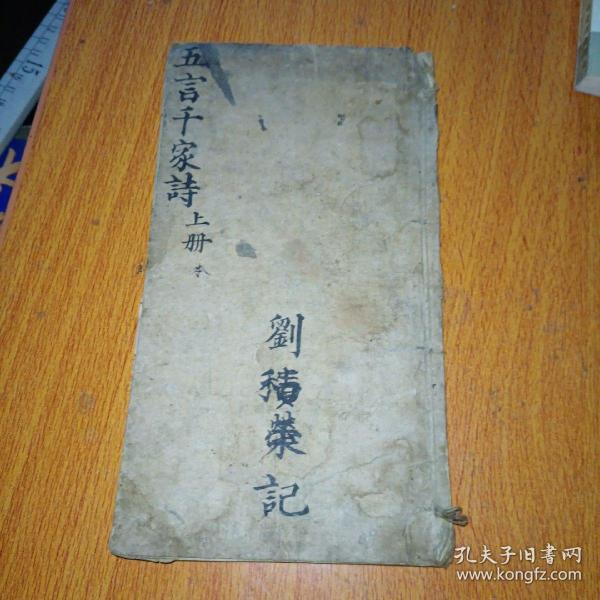 五言千家詩上册
本
劉積榮記
15
孔夫子旧書网
www.kongfz.com